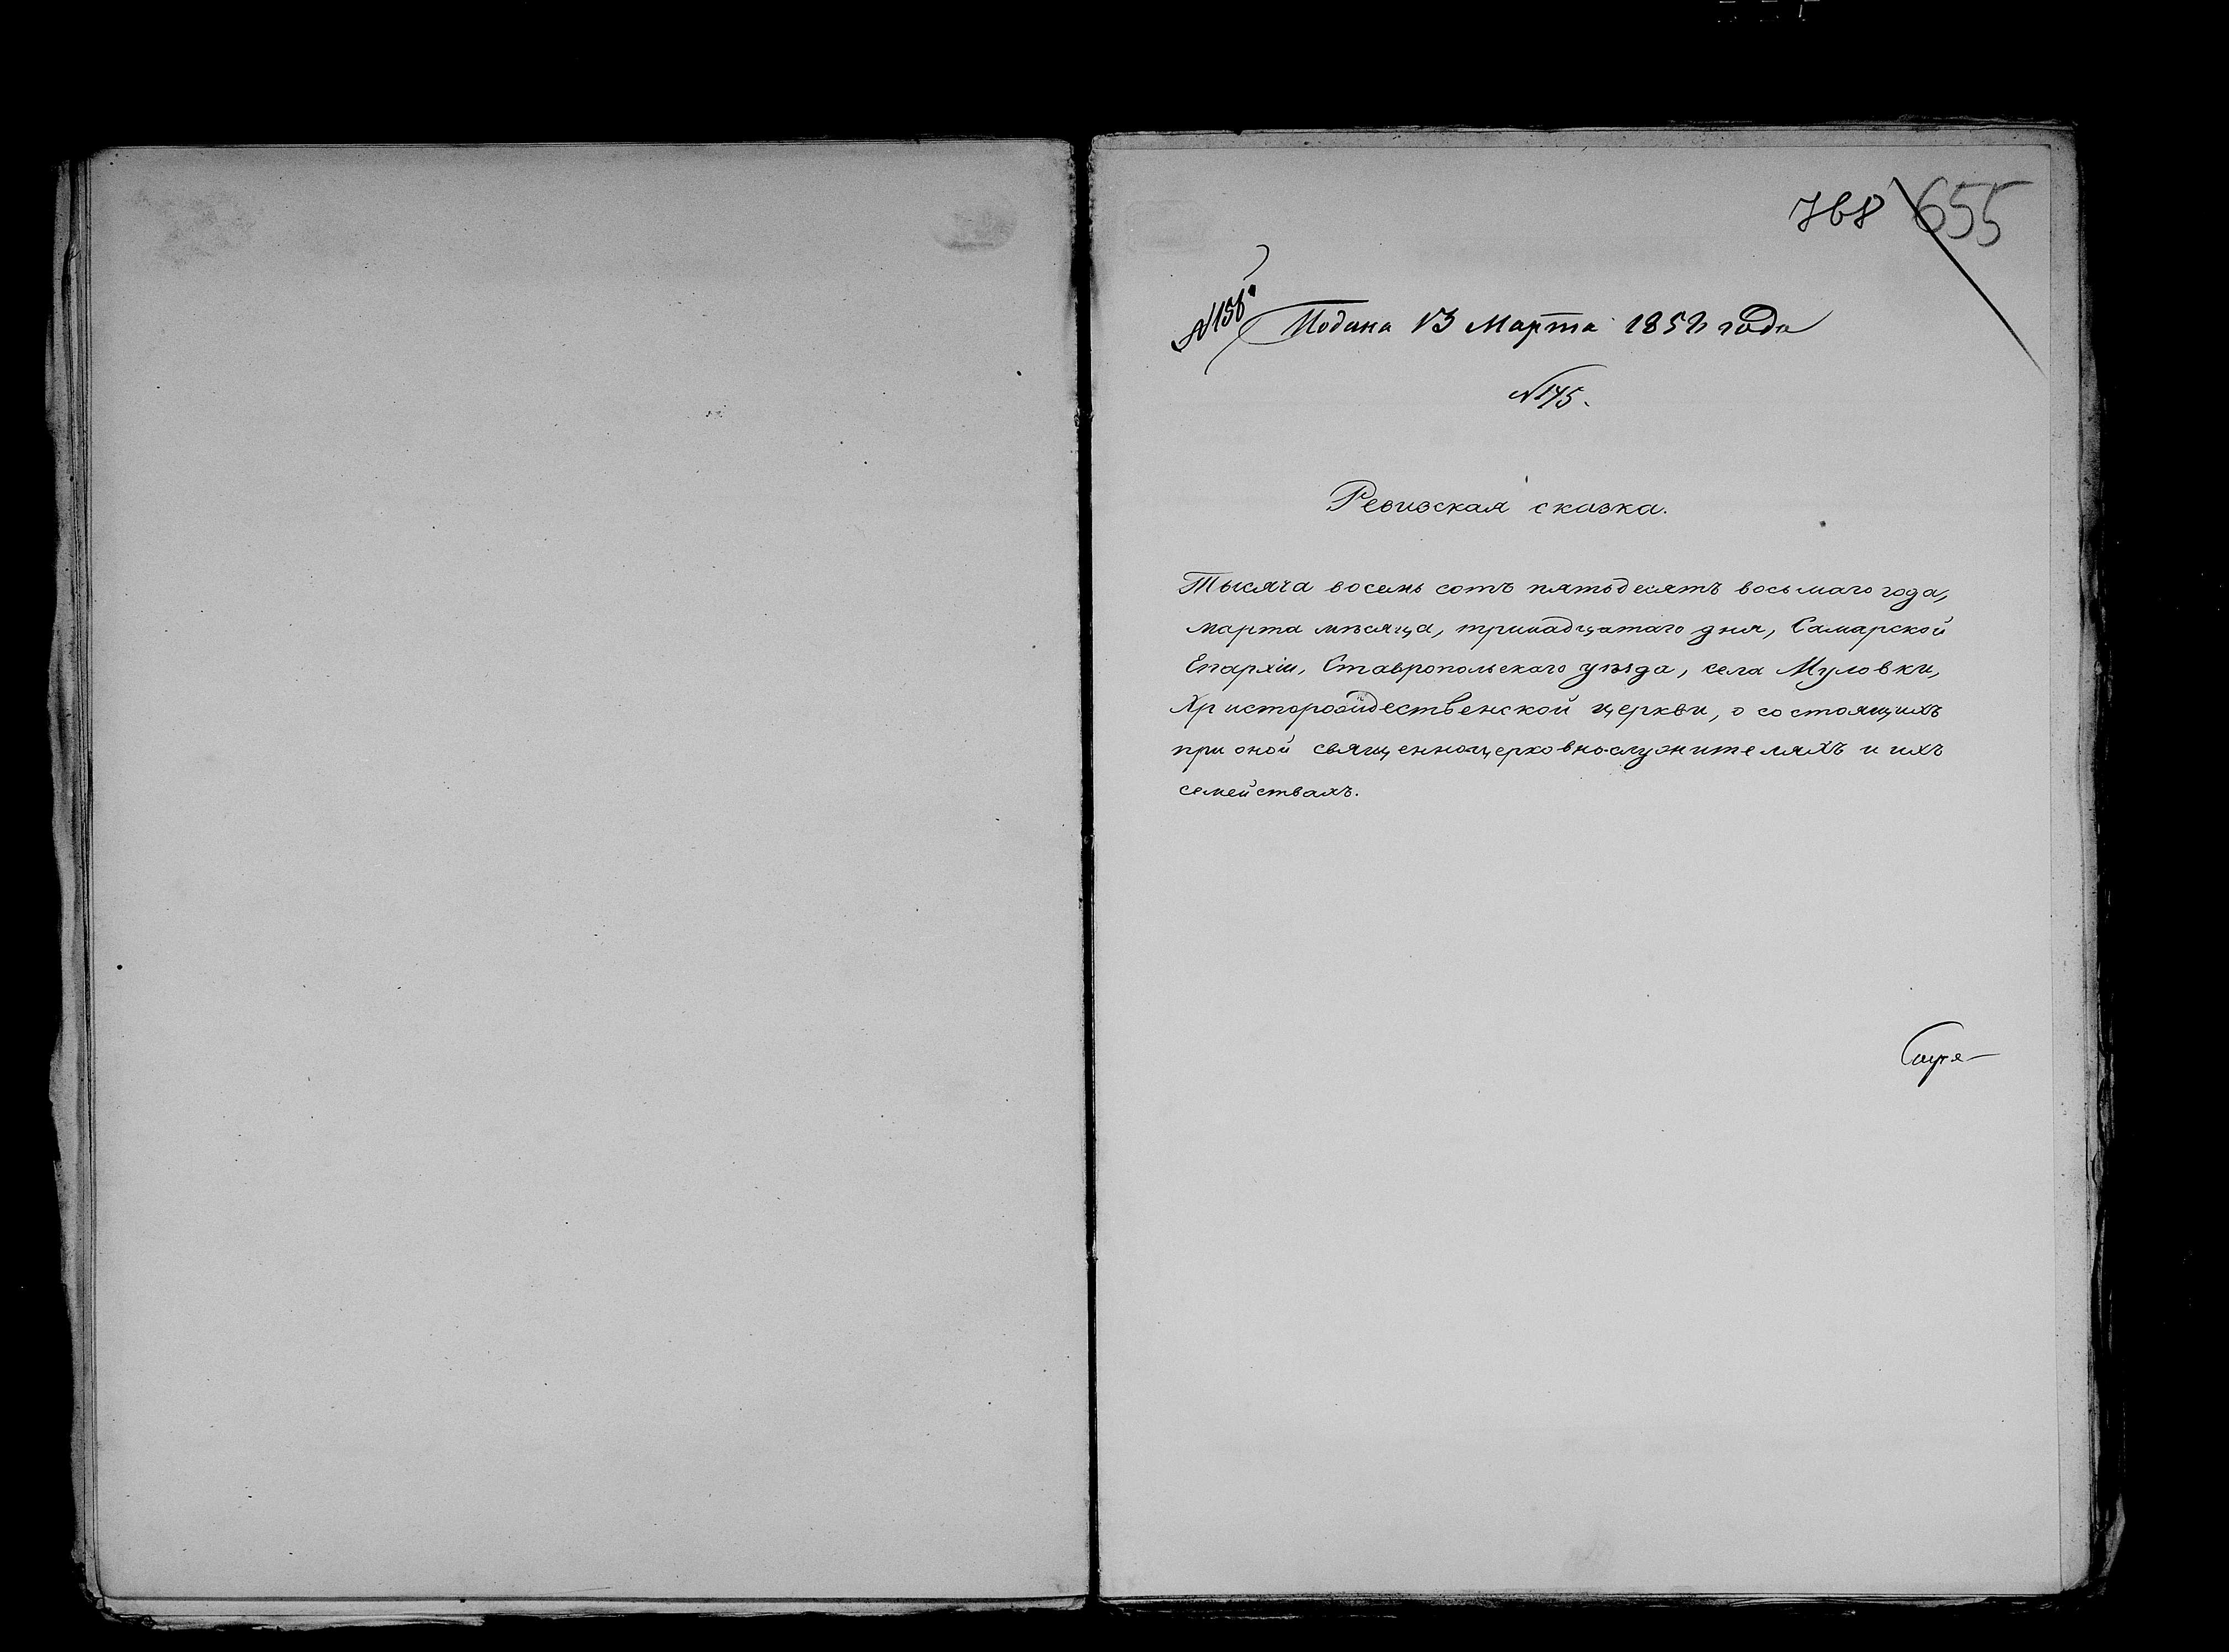 768 655
№ 156
Подана 13 Марта 1858 года
№ 145.
Ревизская сказка.
Тысяча восемь сотъ пятьдесятъ восьмаго года,
марта мѣсяца, тринадцатаго дня, Самарской
Епархіи, Ставропольскаго уѣзда, села Муловки,
Христорождественской церкви, о состоящихъ
при оной священноцерковно-служителяхъ и ихъ
семействахъ.